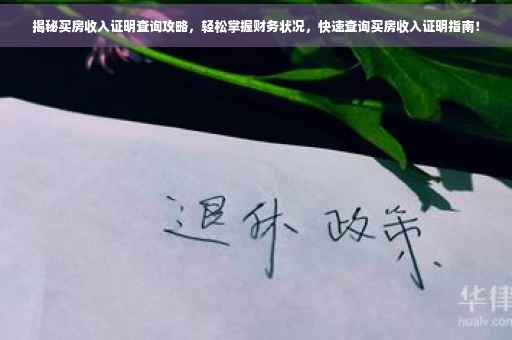 揭秘买房收入证明查询攻略，轻松掌握财务状况，快速查询买房收入证明指南！
退休 政策
华律
hualv.com